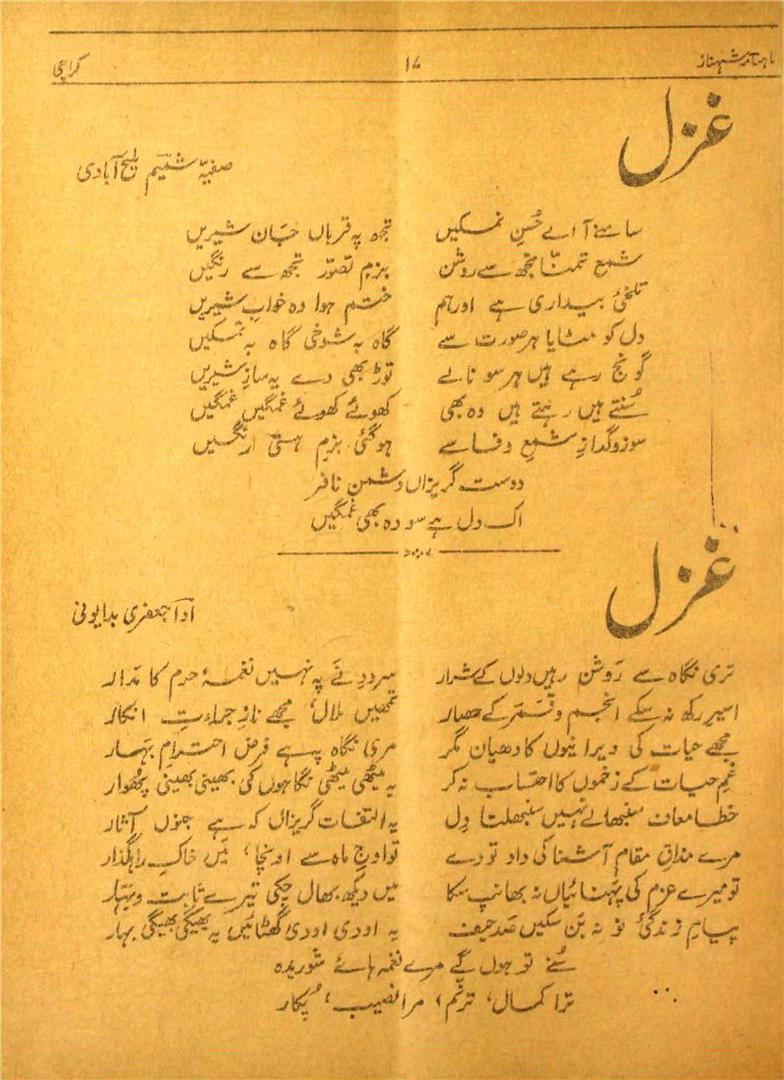 ماہنامہ شہناز ۱۷ کراچی
غزل
صفیہ شمیم ملیح آبادی
سامنے آ اے حُسنِ نمکیں تجھ پہ قرباں جَانِ شیریں
شمعِ تمنّا تجھ سے روشن بزمِ تصوّر تجھ سے رنگیں
تلخیٔ بیداری ہے اور ہم ختم ہوا وہ خوابِ شیریں
دل کو مٹایا ہر صورت سے گاہ بہ شوخی گاہ بہ تمکیں
گونج رہے ہیں ہر سو نالے توڑ بھی دے یہ سازِ شیریں
سُنتے ہیں رہتے ہیں وہ بھی کھوئے کھوئے غمگیں غمگیں
سوز و گدازِ شمعِ وفا سے ہوگئی بزمِ ہستی رنگیں
دوست گریزاں دشمن نافر
اک دل ہے سو وہ بھی غمگیں
غزل
ادا جعفری بدایونی
تری نگاہ سے رَوشن رہیں دلوں کے شرار سرودِ نَے پہ نہیں نغمۂ حرم کا مَدار
اسیر رکھ نہ سکے انجم و قمر کے حصار تمھیں ملال، مجھے نازِ جراءتِ انکار
مجھے حیات کی ویرانیوں کا دھیان مگر مری نگاہ پہ ہے فرض احترامِ بہار
غمِ حیات کے زخموں کا احتساب نہ کر یہ میٹھی میٹھی نگاہوں کی بھینی بھینی پھوار
خطا معاف سنبھالے نہیں سنبھلتا دِل یہ التفات گریزاں کہ ہے جنوں آثار
مرے مذاقِ مقام آشنا کی داد تو دے تو اوجِ ماہ سے اونچا، مَیں خاکِ راہگذار
تو میرے عزم کی پہنائیاں نہ بھانپ سکا میں دیکھ بھال چکی تیرے ثابت و سیّار
پیامِ زندگیٔ نو نہ بَن سکیں صَد حیف یہ اودی اودی گھٹائیں یہ بھیگی بھیگی بہار
سُنے تو ہوں گے مرے نغمہ ہائے شوریدہ
ترا کمال، ترنّم، مرا نصیب، پُکار